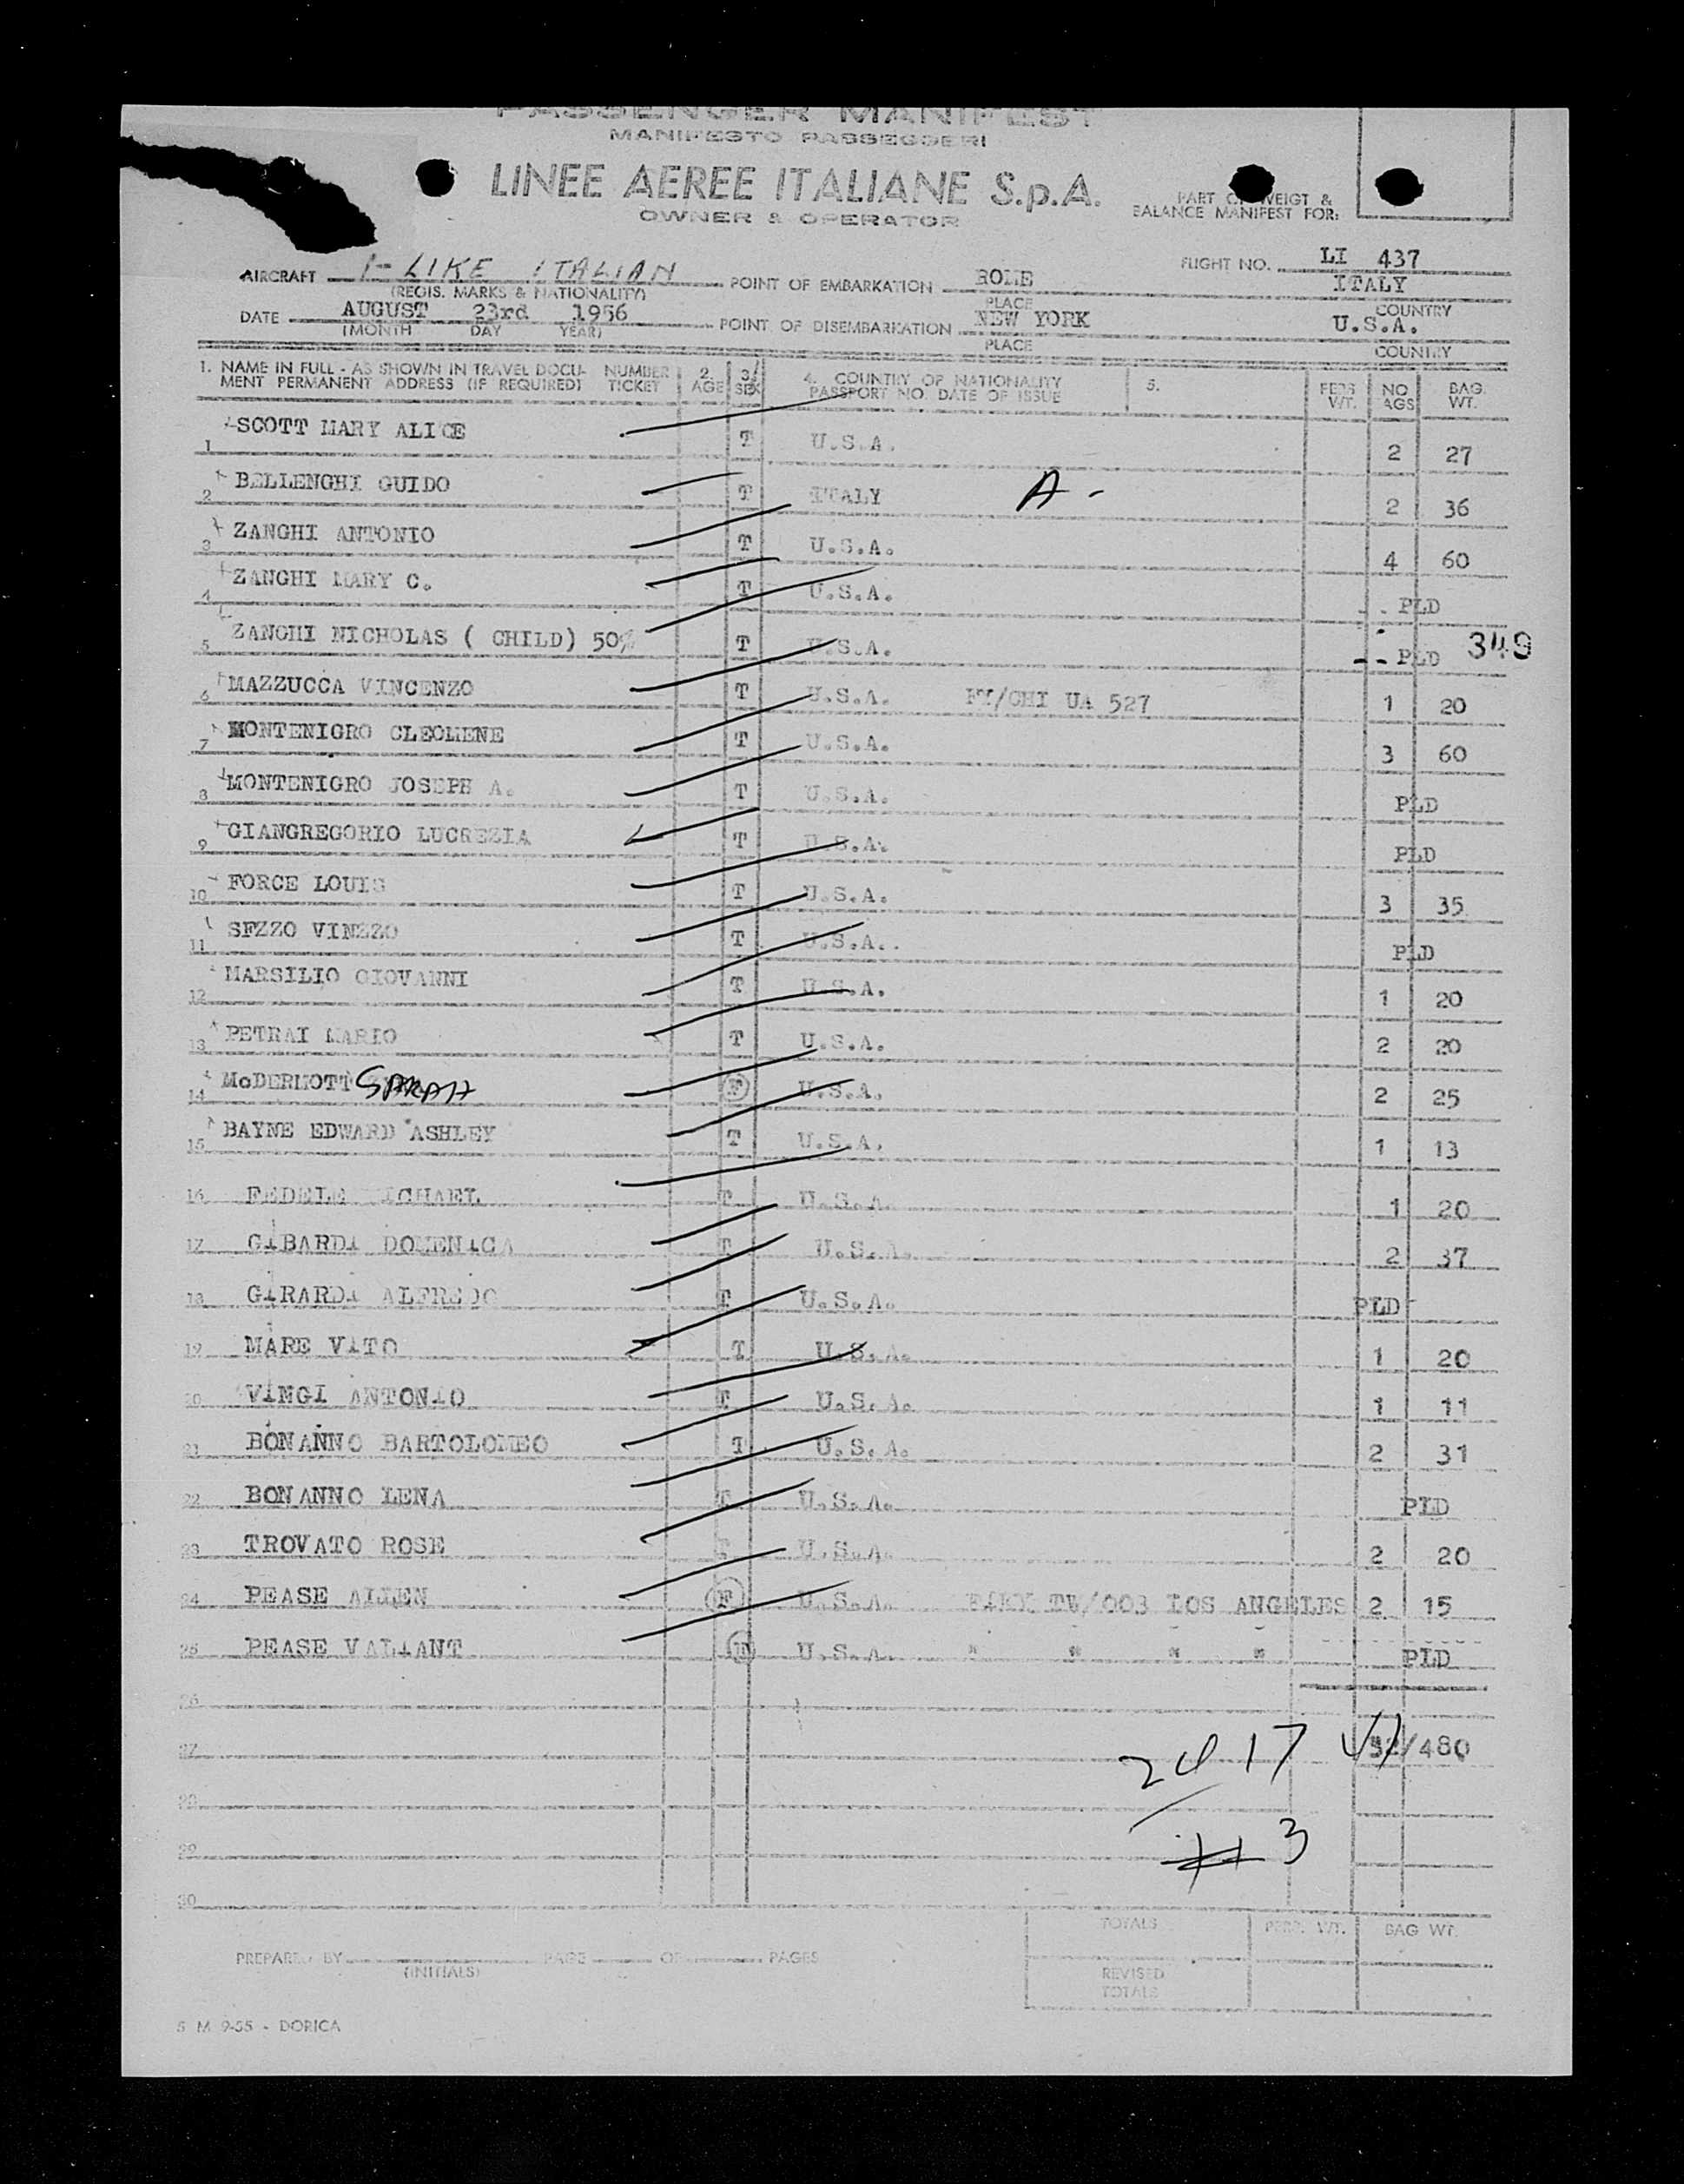 PASSENGER MANIFEST
MANIFESTO PASSEGGERI
LINEE AEREE ITALIANE S.p.A.
OWNER & OPERATOR
PART OF WEIGT &
BALANCE MANIFEST FOR:
AIRCRAFT I-LIKE ITALIAN POINT OF EMBARKATION ROME FLIGHT NO. LI 437
(REGIS. MARKS & NATIONALITY) PLACE ITALY COUNTRY
DATE AUGUST 23rd 1956 POINT OF DISEMBARKATION NEW YORK U.S.A.
(MONTH DAY YEAR) PLACE COUNTRY
1. NAME IN FULL - AS SHOWN IN TRAVEL DOCU- NUMBER 2. 3/ 4. COUNTRY OF NATIONALITY 5. PERS NO BAG.
MENT PERMANENT ADDRESS (IF REQUIRED) TICKET AGE SEX PASSPORT NO. DATE OF ISSUE WT. AGS WT.
1 SCOTT MARY ALICE T U.S.A. 2 27
2 BELLENGHI GUIDO T ITALY A - 2 36
3 ZANGHI ANTONIO T U.S.A. 4 60
4 ZANGHI MARY C. T U.S.A. PLD
5 ZANGHI NICHOLAS ( CHILD) 50% T U.S.A. -- PLD 349
6 MAZZUCCA VINCENZO T U.S.A. NY/CHI UA 527 1 20
7 MONTENIGRO CLEOMENE T U.S.A. 3 60
8 MONTENIGRO JOSEPH A. T U.S.A. PLD
9 GIANGREGORIO LUCREZIA T U.S.A. PLD
10 FORCE LOUIS T U.S.A. 3 35
11 SFZZO VINZZO T U.S.A.. PLD
12 MARSILIO GIOVANNI T U.S.A. 1 20
13 PETRAI MARIO T U.S.A. 2 20
14 McDERMOTT SARAH F U.S.A. 2 25
15 BAYNE EDWARD ASHLEY T U.S.A. 1 13
16 FEDELE MICHAEL T U.S.A. 1 20
17 GIBARDI DOMENICA T U.S.A. 2 37
18 GIRARDI ALFREDO T U.S.A. PLD
19 MARE VITO T U.S.A. 1 20
20 VINGI ANTONIO T U.S.A. 1 11
21 BONANNO BARTOLOMEO T U.S.A. 2 31
22 BONANNO LENA T U.S.A. PLD
23 TROVATO ROSE T U.S.A. 2 20
24 PEASE ALLEN F U.S.A. TW/003 LOS ANGELES 2 15
25 PEASE VALIANT F U.S.A. " " " " PLD
26
27 17 32/480
28
29 # 3
30
TOTALS PERS. WT. BAG WT.
PREPARED BY PAGE OF PAGES
(INITIALS)
REVISED
TOTALS
5 M 9-55 - DORICA